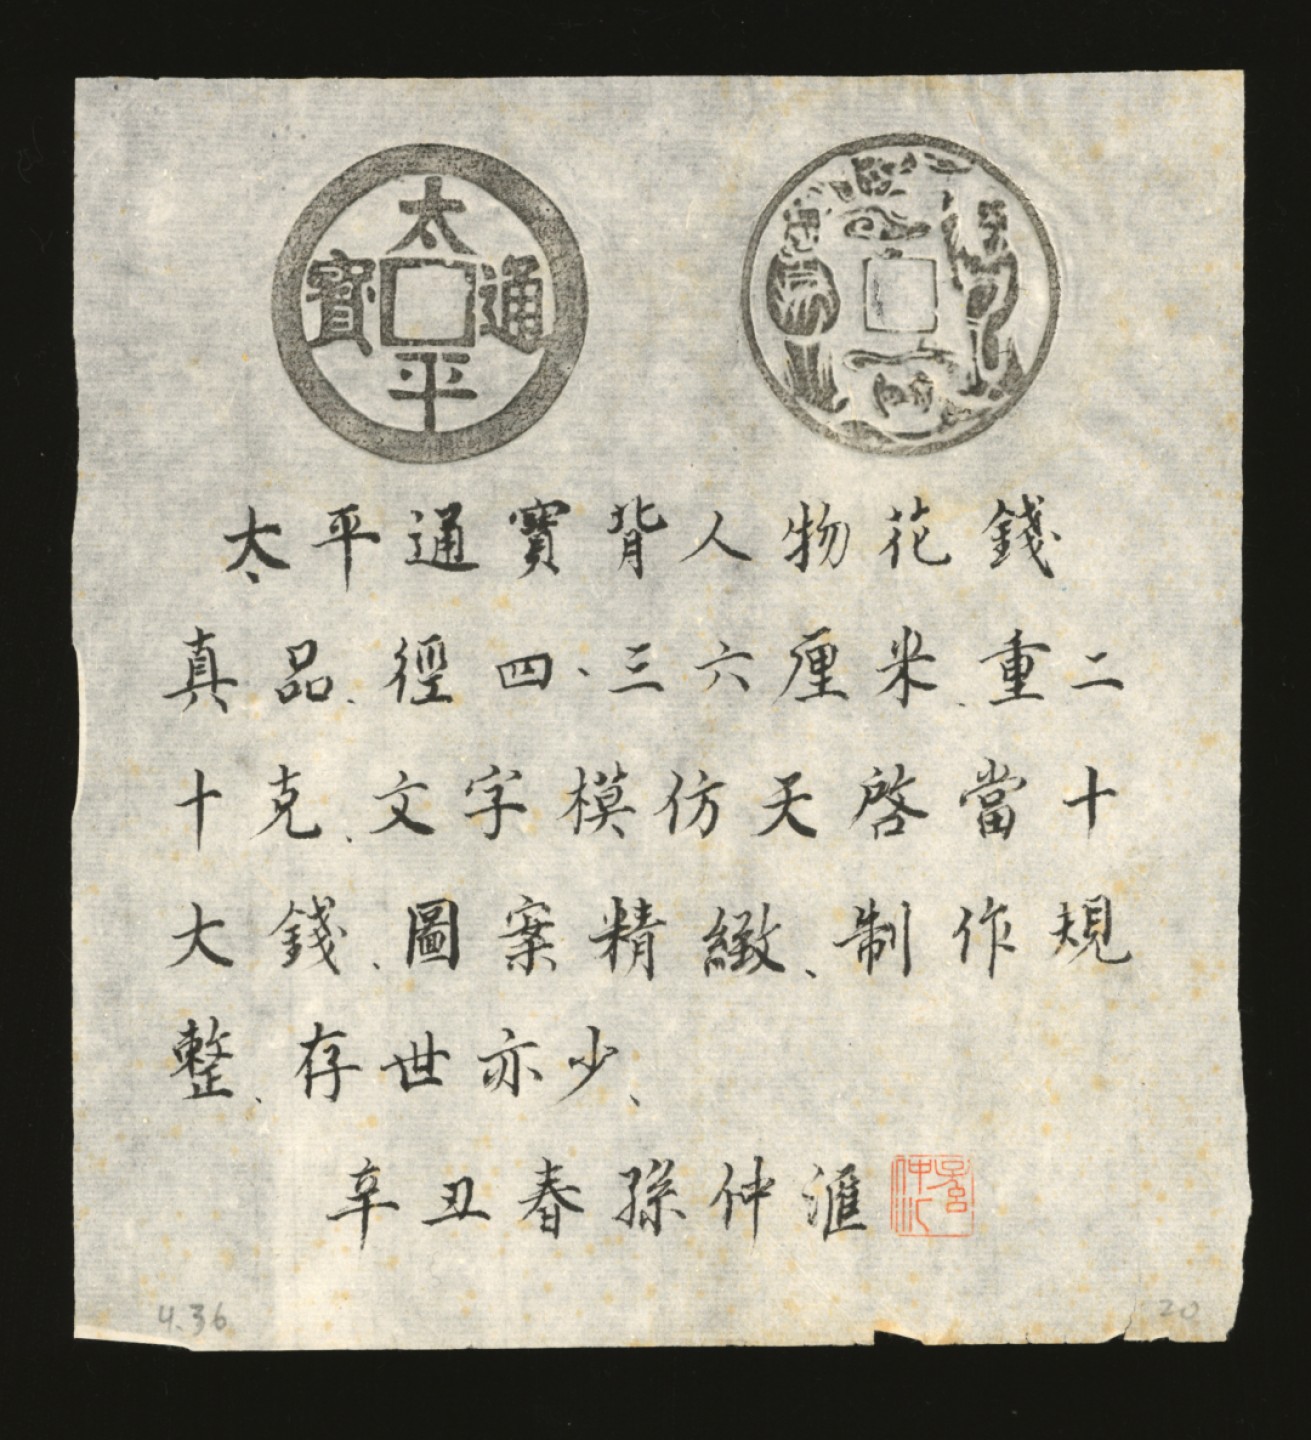 太平通寶
太平通寶背人物花錢
真品、徑四、三六厘米、重二
十克、文字模仿天啓當十
大錢、圖案精緻、制作規
整、存世亦少、
辛丑春孫仲滙
4.36
20